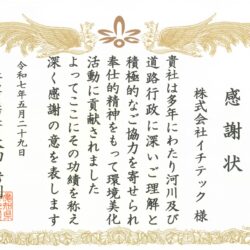 感謝状
株式会社イチテック 様
貴社は多年にわたり河川及び
道路行政に深いご理解と
積極的なご協力を寄せられ
奉仕的精神をもって環境美化
活動に貢献されました
よってここにその功績を称え
深く感謝の意を表します
令和七年五月二十九日